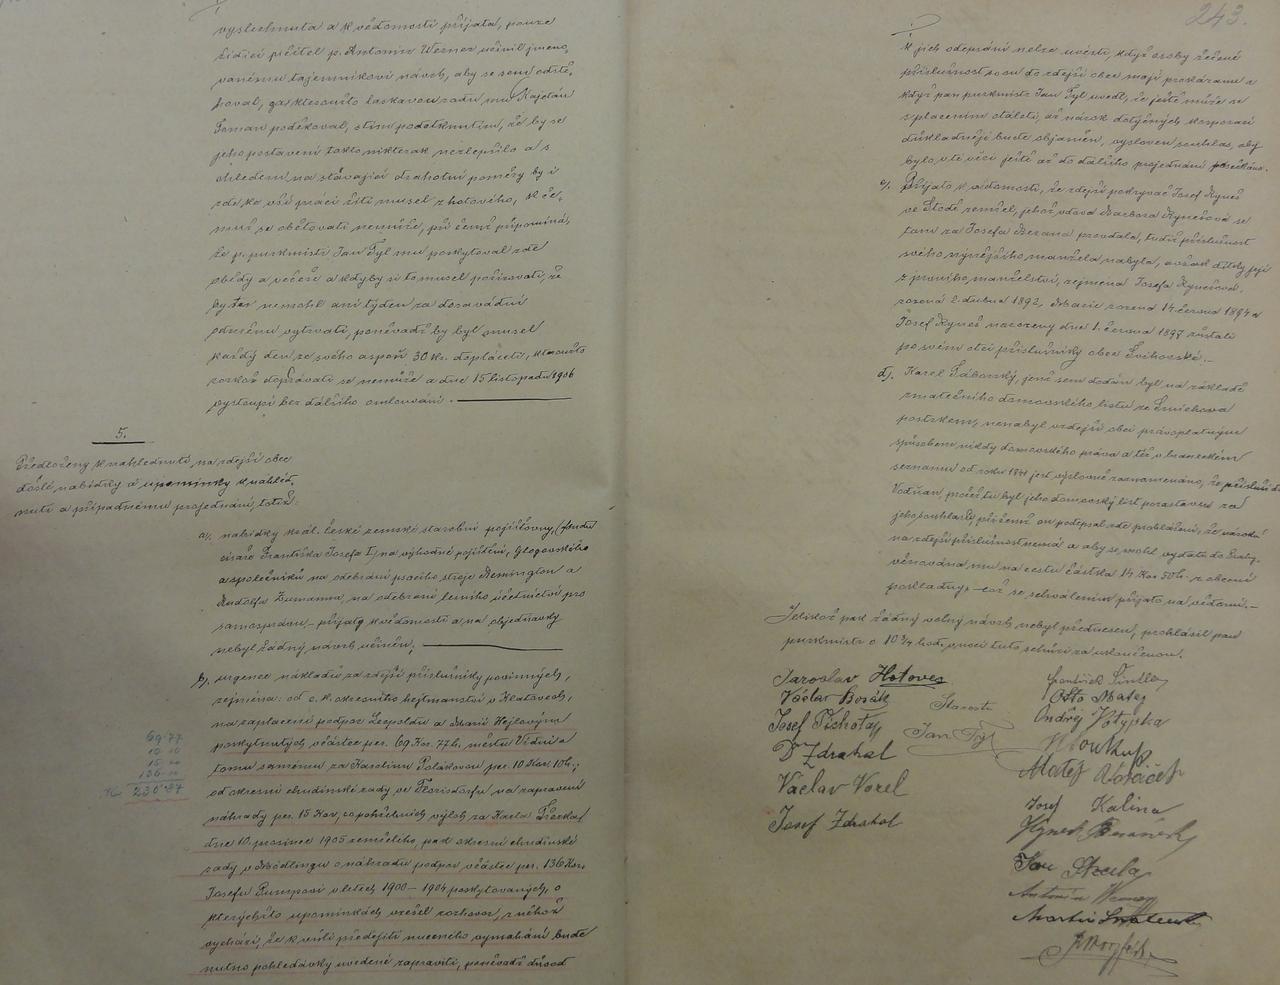 vyslechnuta a k vědomosti přijata, pouze
řídící učitel p. Antonín Werner učinil jmeno,
vanému tajemníkovi návrh, aby se sem odstě,
hoval, za kteroužto laskavou radu mu Kajetán
Toman poděkoval, s tím podotknutím, že by se
jeho postavení takto nikterak nezlepšilo a s
ohledem na stávající drahotní poměry by i
zde ku vší práci žíti musel z hotového, k če,
muž se obětovati nemůže, při čemž připomíná,
že p. purkmistr Jan Týl mu poskytoval zde
obědy a večeře a kdyby si to musel pořizovati, že
by zde nemohl ani týden za dosavádní
odměnu vytrvati, poněvadž by byl musel
každý den ze svého aspoň 30 kr. dopláceti, kteroužto
rozkoš dopřávati se nemůže a dne 15 listopadu 1906
vystoupí bez dalšího omlouvání.
5.
Předloženy k nahlédnutí, na zdejší obec
došlé nabídky a upomínky k nahléd,
nutí a případnému projednání, totiž:
a). nabídky král. české zemské starobní pojišťovny, (fondu
císaře Františka Josefa I) na výhodné pojištění, Glogovského
a společníků na odebrání psacího stroje Remington a
Rudolfa Zumanna, na odebrání lesního účetnictví pro
samosprávu – přijaty k vědomosti a na objednávky
nebyl žádný návrh učiněn.
b). urgence nákladů za zdejší příslušníky povinných,
zejména: od c. k. okresního hejtmanství v Klatovech,
na zaplacení podpor Leopoldu a Marii Hejlovým
poskytnutých v částce per. 69 Kor. 77 h. městu Vídni a
tomu samému za Karolinu Polákovou per. 10 Kor 10 h.;
od okresní chudinské rady ve Florisdorfu na zapravení
náhrady per. 15 Kor, co pohřebních výloh za Karla
dne 10. prosince 1905 zemřelého, pak okresní chudinské
rady v Mödlingu o náhradu podpor v částce per. 136 Kor.
Josefu Pumprovi v letech 1900 – 1904 poskytovaných, o
kterýchžto upomínkách vzešel rozhovor, z něhož
vychází, že k vůli předejití nuceného vymáhání bude
nutno pohledávky uvedené zapraviti, poněvadž důvod
69·77
10·10
15·–
136·–
K 230·87
243.
k jich odepření nelze uvésti, když osoby řečené
příslušnost svou do zdejší obce mají prokázanu a
když pan purkmistr Jan Týl uvedl, že ještě může se
s placením otáleti, až nárok dotyčných korporací
důkladněji bude objasněn, vysloven souhlas, aby
bylo v té věci ještě až do dalšího projednání posečkáno.
c). Přijato k vědomosti, že zdejší pokrývač Josef Kyneš
ve Stodě zemřel, jehož vdova Barbora Kynešová se
tam za Josefa Berana provdala, tudíž příslušnost
svého nynějšího manžela nabyla, avšak dítky její
z prvního manželství, zejména Josefa Kynešová,
rozená 2. dubna 1892, Marie rozená 14 června 1894 a
Josef Kyneš narozený dne 1. června 1897 zůstali
po svém otci příslušníky obce Švihovské. –
d). Karel Táborský, jenž sem dodán byl na základě
zmatečního domovského listu ze Smíchova
postrkem, nenabyl v zdejší obci právoplatným
způsobem nikdy domovského práva a též v braneckém
seznamu od roku 1841 jest výslovně zaznamenáno, že přísluší do
Vodňan, pročež tu byl jeho domovský list pozastaven za
jeho souhlasu, při čemž on podepsal zde prohlášení, že nároků
na zdejší příslušnost nemá a aby se mohl vydati do Prahy,
věnována mu na cestu částka 14 Kor 50 h. z obecní
pokladny, – což se schválením přijato na vědomí. –
Jelikož pak žádný volný návrh nebyl přednesen, prohlásil pan
purkmistr o 10 3/4 hod. v noci tuto schůzi za ukončenou.
Jaroslav Hotovec
Václav Bosák
Josef
Dr Zdrahal
Václav Vorel
Josef Zdrahal
Starosta
Jan Týl
František
Otto Matej
Ondřej Votypka
Matěj
Josef Kalina
Hynek Beránek
Jan
Antonín Werner
Martin